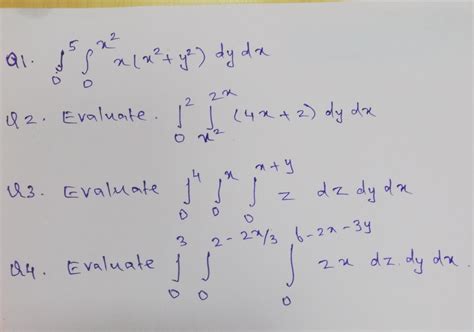 Q1. ∫₀⁵ ∫₀^{x²} x(x²+y²) dy dx
Q2. Evaluate. ∫₀² ∫_{x²}^{2x} (4x+2) dy dx
Q3. Evaluate ∫₀⁴ ∫₀ˣ ∫₀^{x+y} z dz dy dx
Q4. Evaluate ∫₀³ ∫₀^{2-2x/3} ∫₀^{6-2x-3y} 2x dz. dy dx.